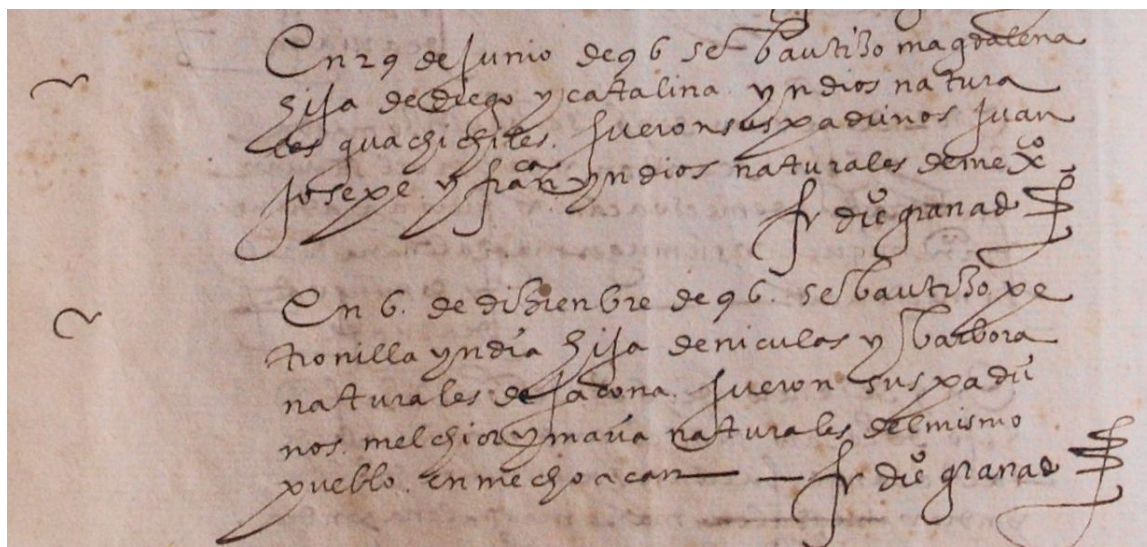 En 29 de Junio de 96 se bautizo magdalena
hija de diego y catalina yndios natura
les guachichiles. fueron sus padrinos Juan
Josepe y fran^ca yndios naturales de mex^co
fr di^o granad^o
En 6. de diziembre de 96. se bautizo pe
tronilla yndia hija de niculas y barbora
naturales de Jacona. fueron sus padri
nos. melchior y maria naturales del mismo
pueblo. en mechoacan — — fr di^o granad^o